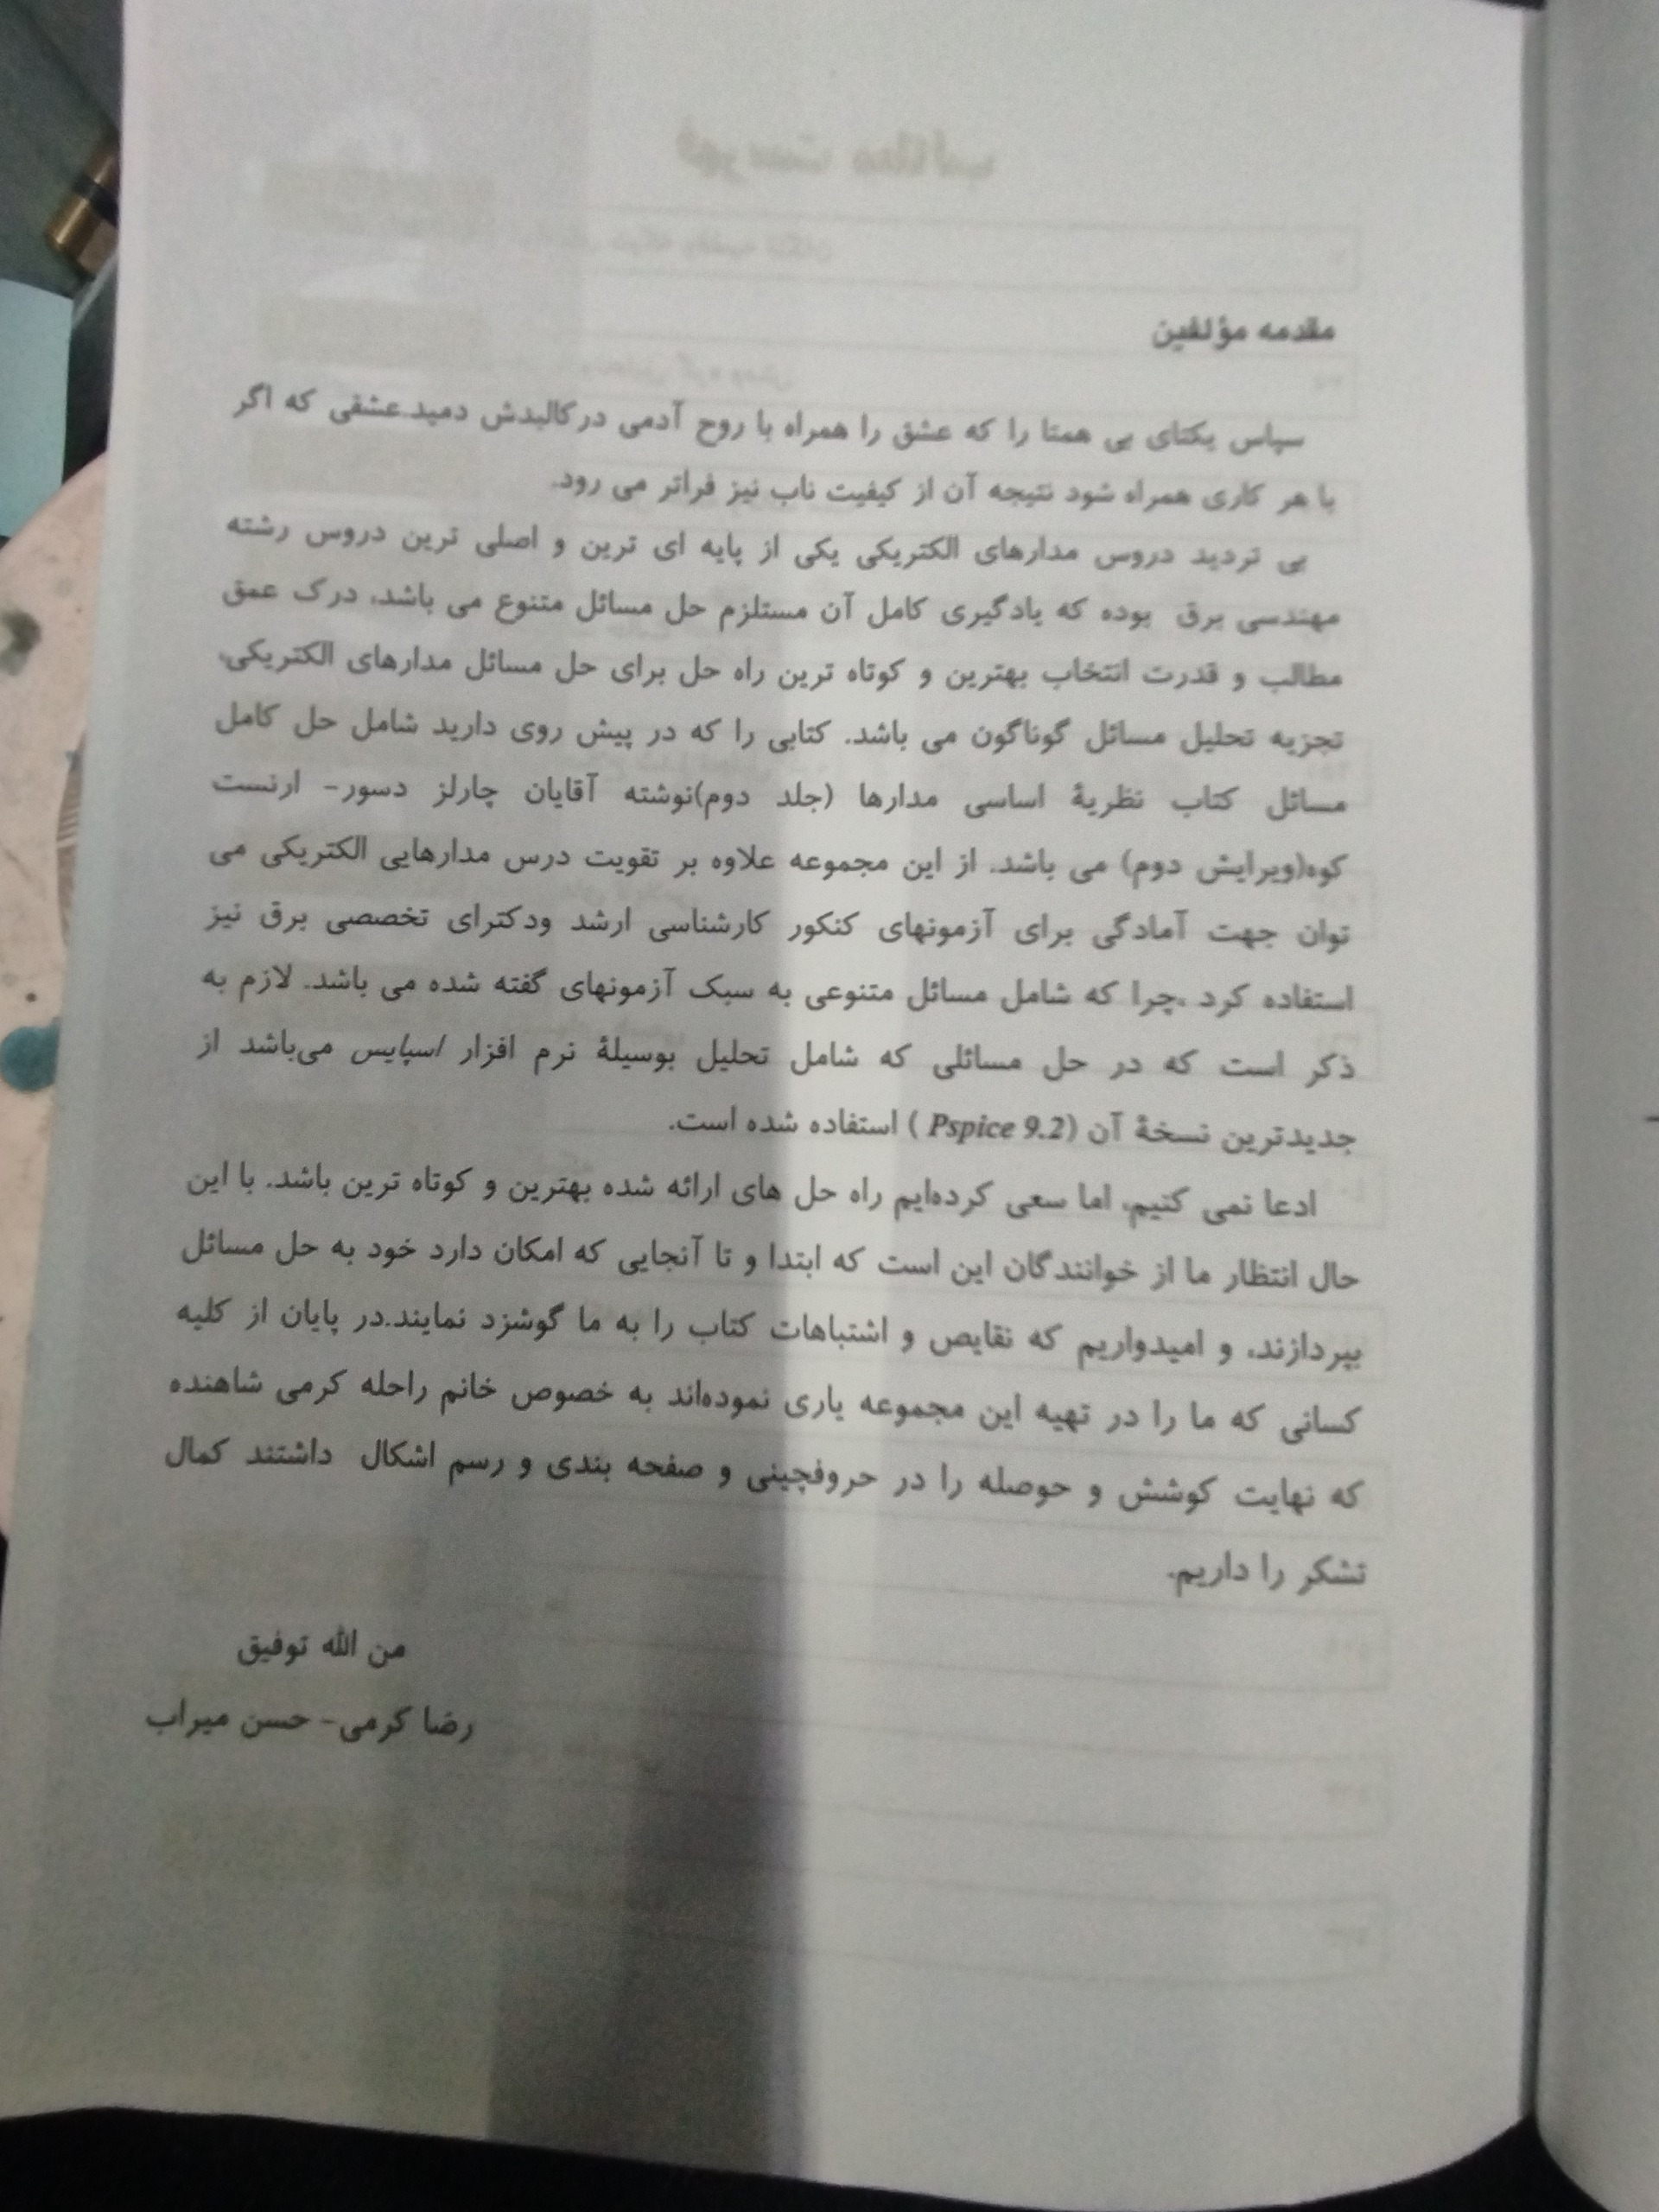 مقدمه مؤلفین
سپاس یکتای بی همتا را که عشق را همراه با روح آدمی درکالبدش دمید.عشقی که اگر
با هر کاری همراه شود نتیجه آن از کیفیت ناب نیز فراتر می رود.
بی تردید دروس مدارهای الکتریکی یکی از پایه ای ترین و اصلی ترین دروس رشته
مهندسی برق بوده که یادگیری کامل آن مستلزم حل مسائل متنوع می باشد، درک عمق
مطالب و قدرت انتخاب بهترین و کوتاه ترین راه حل برای حل مسائل مدارهای الکتریکی،
تجزیه تحلیل مسائل گوناگون می باشد. کتابی را که در پیش روی دارید شامل حل کامل
مسائل کتاب نظریهٔ اساسی مدارها (جلد دوم)نوشته آقایان چارلز دسور- ارنست
کوه(ویرایش دوم) می باشد. از این مجموعه علاوه بر تقویت درس مدارهایی الکتریکی می
توان جهت آمادگی برای آزمونهای کنکور کارشناسی ارشد ودکترای تخصصی برق نیز
استفاده کرد ،چرا که شامل مسائل متنوعی به سبک آزمونهای گفته شده می باشد. لازم به
ذکر است که در حل مسائلی که شامل تحلیل بوسیلهٔ نرم افزار اسپایس می‌باشد از
جدیدترین نسخهٔ آن (Pspice 9.2 ) استفاده شده است.
ادعا نمی کنیم، اما سعی کرده‌ایم راه حل های ارائه شده بهترین و کوتاه ترین باشد. با این
حال انتظار ما از خوانندگان این است که ابتدا و تا آنجایی که امکان دارد خود به حل مسائل
بپردازند، و امیدواریم که نقایص و اشتباهات کتاب را به ما گوشزد نمایند.در پایان از کلیه
کسانی که ما را در تهیه این مجموعه یاری نموده‌اند به خصوص خانم راحله کرمی شاهنده
که نهایت کوشش و حوصله را در حروفچینی و صفحه بندی و رسم اشکال داشتند کمال
تشکر را داریم.
من الله توفیق
رضا کرمی- حسن میراب